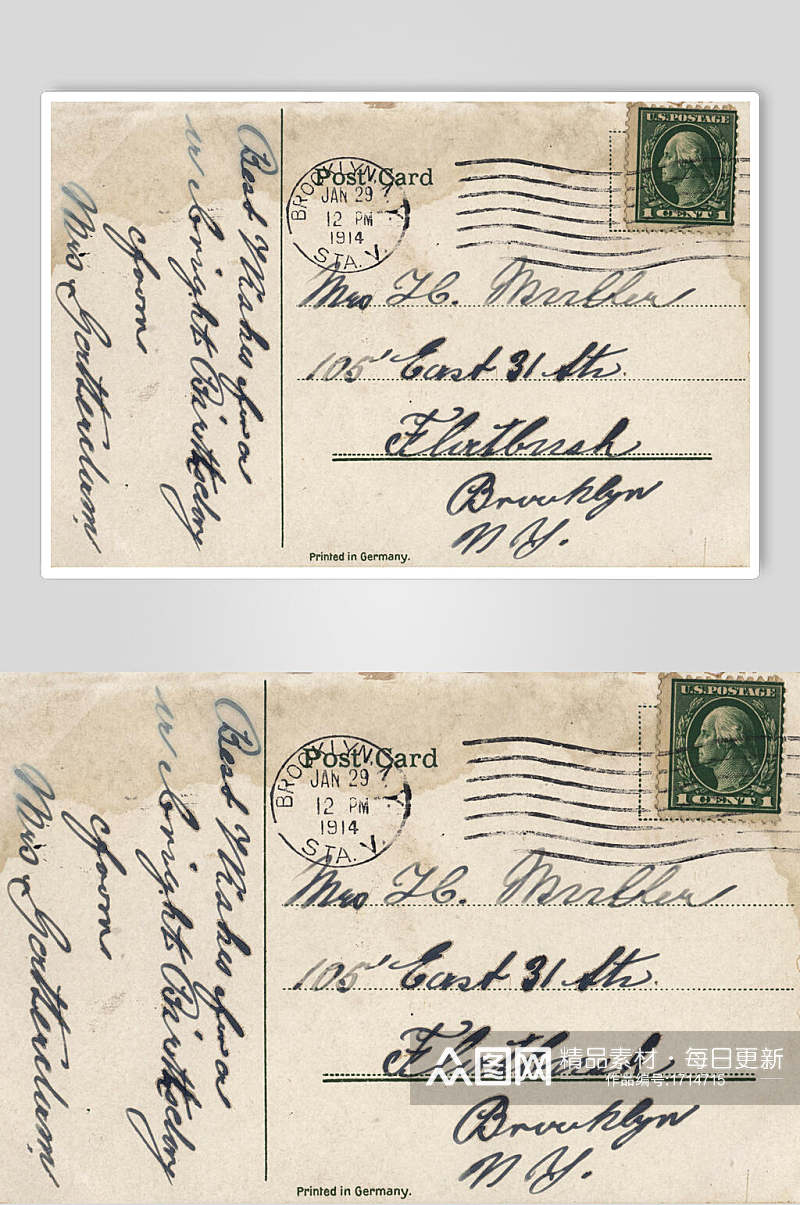 Best Wishes for a
a bright Birthday
from
Mrs Gatterdam
Post Card
BROOKLYN, N.Y.
JAN 29
12 PM
1914
STA. V.
U.S. POSTAGE
1 CENT 1
Mrs H. Muller
105 East 31 Str.
Flatbush
Brooklyn
N.Y.
Printed in Germany.
Best Wishes for a
a bright Birthday
from
Mrs Gatterdam
Post Card
BROOKLYN, N.Y.
JAN 29
12 PM
1914
STA. V.
U.S. POSTAGE
1 CENT 1
Mrs H. Muller
105 East 31 Str.
Flatbush
众图网 精品素材·每日更新
作品编号:1714715
Brooklyn
N.Y.
Printed in Germany.